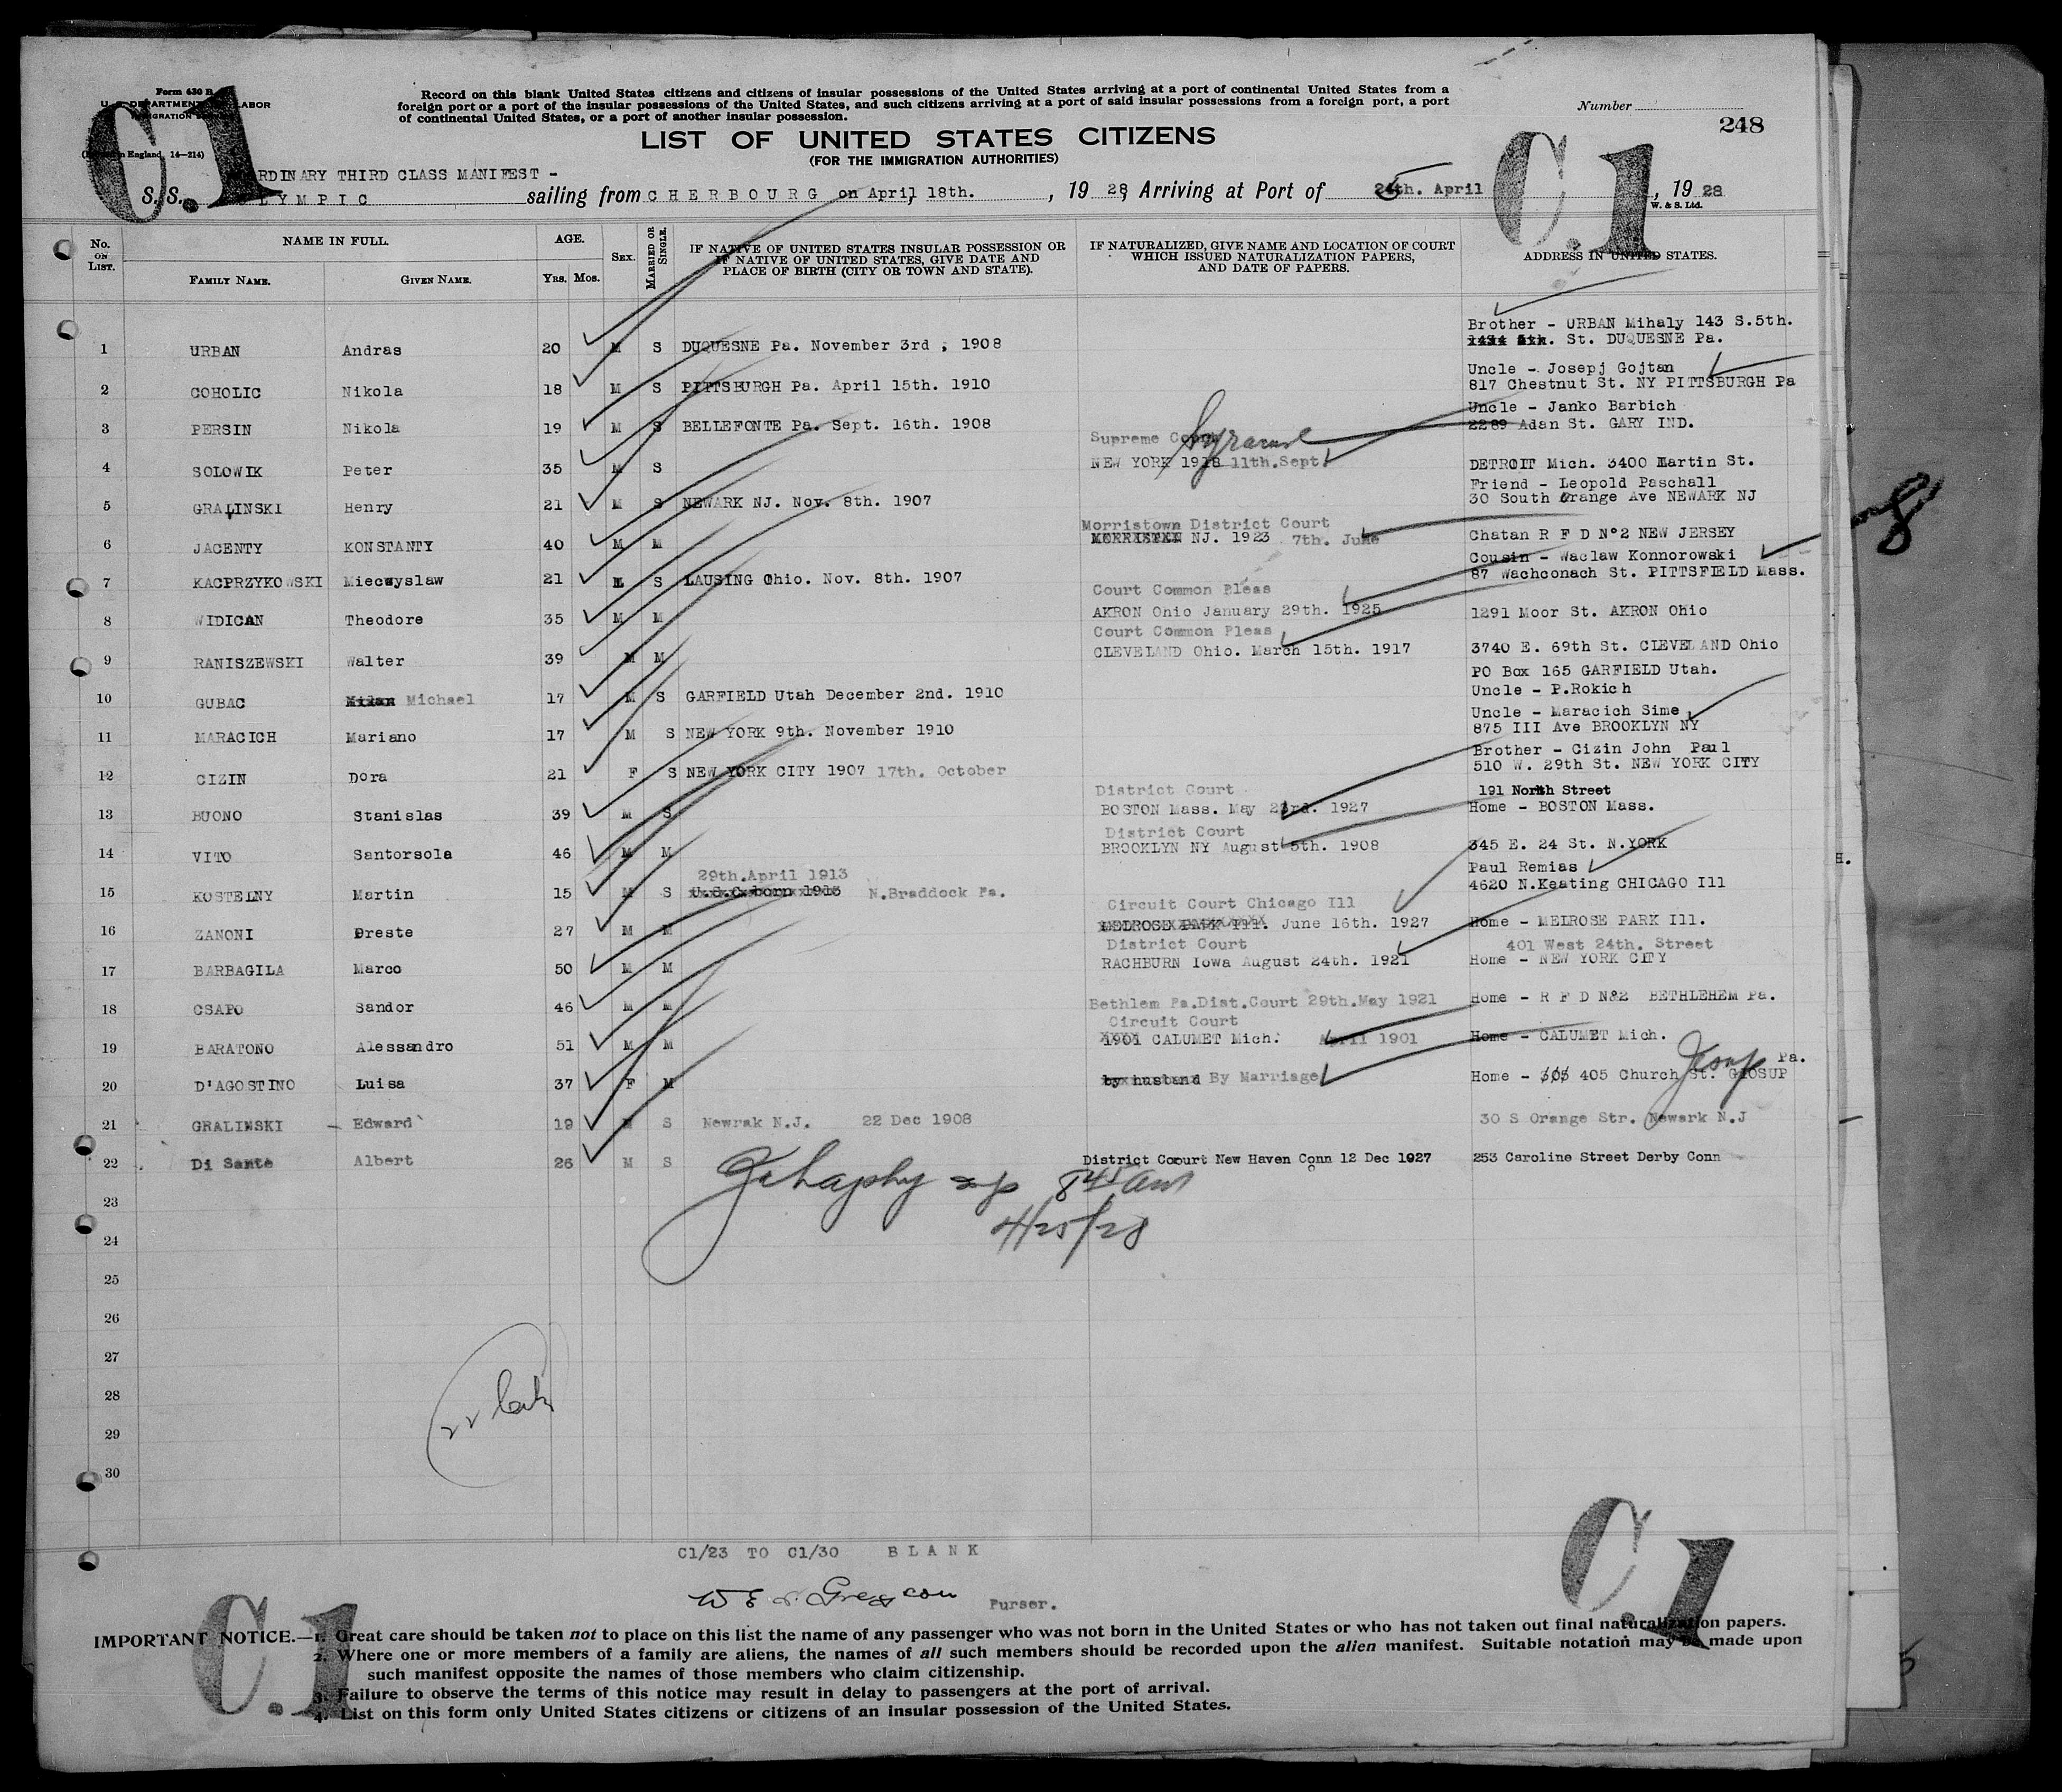 Form 630 B
U. S. DEPARTMENT OF LABOR
IMMIGRATION SERVICE
(Printed in England, 14—214)
C.1
C.1
Record on this blank United States citizens and citizens of insular possessions of the United States arriving at a port of continental United States from a
foreign port or a port of the insular possessions of the United States, and such citizens arriving at a port of said insular possessions from a foreign port, a port
of continental United States, or a port of another insular possession.
Number
248
LIST OF UNITED STATES CITIZENS
(FOR THE IMMIGRATION AUTHORITIES)
ORDINARY THIRD CLASS MANIFEST -
S.S. OLYMPIC sailing from CHERBOURG on April 18th. , 19 28, Arriving at Port of 25th. April , 19 28
W. & S. Ltd.
No. ON LIST. NAME IN FULL. AGE. SEX. MARRIED OR SINGLE. IF NATIVE OF UNITED STATES INSULAR POSSESSION OR IF NATIVE OF UNITED STATES, GIVE DATE AND PLACE OF BIRTH (CITY OR TOWN AND STATE). IF NATURALIZED, GIVE NAME AND LOCATION OF COURT WHICH ISSUED NATURALIZATION PAPERS, AND DATE OF PAPERS. ADDRESS IN UNITED STATES.
FAMILY NAME. GIVEN NAME. YRS. MOS.
Brother - URBAN Mihaly 143 S.5th.
1 URBAN Andras 20 M S DUQUESNE Pa. November 3rd , 1908 St. DUQUESNE Pa.
Uncle - Josepj Gojtan
2 COHOLIC Nikola 18 M S PITTSBURGH Pa. April 15th. 1910 817 Chestnut St. NY PITTSBURGH Pa
Uncle - Janko Barbich
3 PERSIN Nikola 19 M S BELLEFONTE Pa. Sept. 16th. 1908 2289 Adan St. GARY IND.
Supreme Court Syracuse
4 SOLOWIK Peter 35 M S NEW YORK 1918 11th.Sept. DETROIT Mich. 3400 Martin St.
Friend - Leopold Paschall
5 GRALINSKI Henry 21 M S NEWARK NJ. Nov. 8th. 1907 30 South Orange Ave NEWARK NJ
Morristown District Court
6 JACENTY KONSTANTY 40 M M NJ. 1923 7th. June Chatan R F D N°2 NEW JERSEY
Cousin - Waclaw Konnorowski
7 KACPRZYKOWSKI Miecwyslaw 21 M S LAUSING Ohio. Nov. 8th. 1907 87 Wachconach St. PITTSFIELD Mass.
Court Common Pleas
8 WIDICAN Theodore 35 M M AKRON Ohio January 29th. 1925 1291 Moor St. AKRON Ohio
Court Common Pleas
9 RANISZEWSKI Walter 39 M M CLEVELAND Ohio. March 15th. 1917 3740 E. 69th St. CLEVELAND Ohio
PO Box 165 GARFIELD Utah.
10 GUBAC Milan Michael 17 M S GARFIELD Utah December 2nd. 1910 Uncle - P.Rokich
Uncle - Maracich Sime
11 MARACICH Mariano 17 M S NEW YORK 9th. November 1910 875 III Ave BROOKLYN NY
Brother - Cizin John Paul
12 CIZIN Dora 21 F S NEW YORK CITY 1907 17th. October 510 W. 29th St. NEW YORK CITY
District Court 191 North Street
13 BUONO Stanislas 39 M S BOSTON Mass. May 23rd. 1927 Home - BOSTON Mass.
District Court
14 VITO Santorsola 46 M M BROOKLYN NY August 5th. 1908 345 E. 24 St. N.YORK
29th.April 1913 Paul Remias
15 KOSTELNY Martin 15 M S U.S.C. born 1913 N.Braddock Pa. 4620 N.Keating CHICAGO Ill
Circuit Court Chicago Ill
16 ZANONI Oreste 27 M M MELROSE PARK Ill. June 16th. 1927 Home - MELROSE PARK Ill.
District Court 401 West 24th. Street
17 BARBAGILA Marco 50 M M RACHBURN Iowa August 24th. 1921 Home - NEW YORK CITY
18 CSAPO Sandor 46 M M Bethlem Pa.Dist.Court 29th.May 1921 Home - R F D N&2 BETHLEHEM Pa.
Circuit Court
19 BARATONO Alessandro 51 M M 1901 CALUMET Mich. April 1901 Home - CALUMET Mich.
Jesup Pa.
20 D'AGOSTINO Luisa 37 F M by husband By Marriage Home - 303 405 Church St. GIOSUP
21 GRALINSKI - Edward 19 M S Newrak N.J. 22 Dec 1908 30 S Orange Str. Newark N.J
22 Di Sante Albert 26 M S District Court New Haven Conn 12 Dec 1927 253 Caroline Street Derby Conn
23 8 45 am
4/25/28
24
25
26
27
28
29
30
C1/23 TO C1/30 BLANK
Purser.
C.1
C.1
IMPORTANT NOTICE.—1. Great care should be taken not to place on this list the name of any passenger who was not born in the United States or who has not taken out final naturalization papers.
2. Where one or more members of a family are aliens, the names of all such members should be recorded upon the alien manifest. Suitable notation may be made upon
such manifest opposite the names of those members who claim citizenship.
3. Failure to observe the terms of this notice may result in delay to passengers at the port of arrival.
4. List on this form only United States citizens or citizens of an insular possession of the United States.